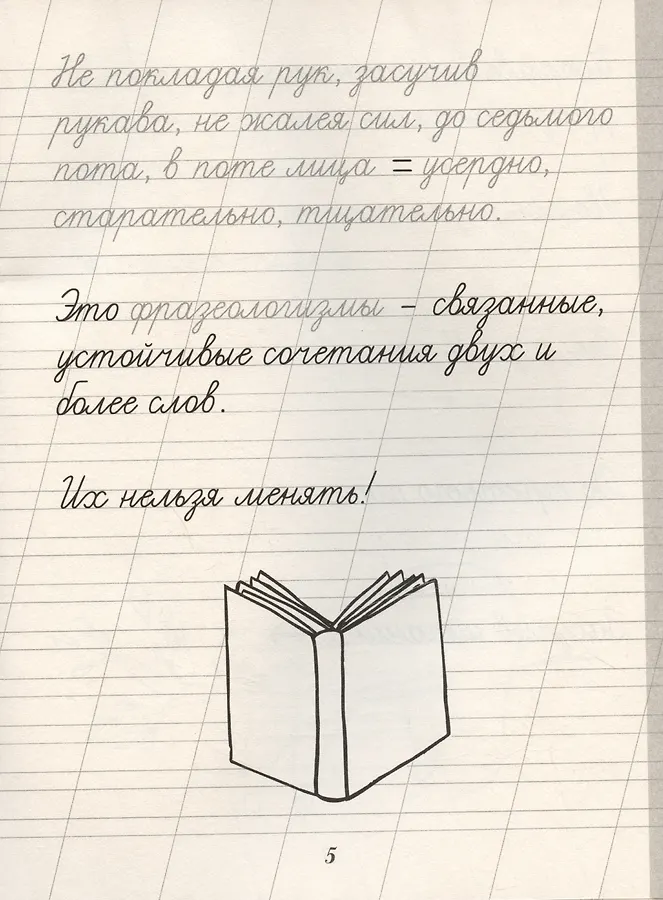 Не покладая рук, засучив
рукава, не жалея сил, до седьмого
пота, в поте лица = усердно,
старательно, тщательно.
Это фразеологизмы – связанные,
устойчивые сочетания двух и
более слов.
Их нельзя менять!
5